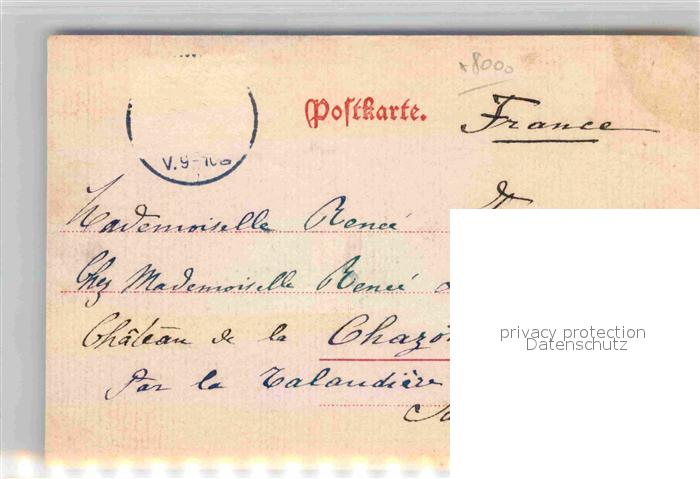 x8000
Postkarte.
France
V.9-10
Mademoiselle Renée
Chez Mademoiselle Renée
Château de la Chazo
Par la Talaudière
privacy protection
Datenschutz